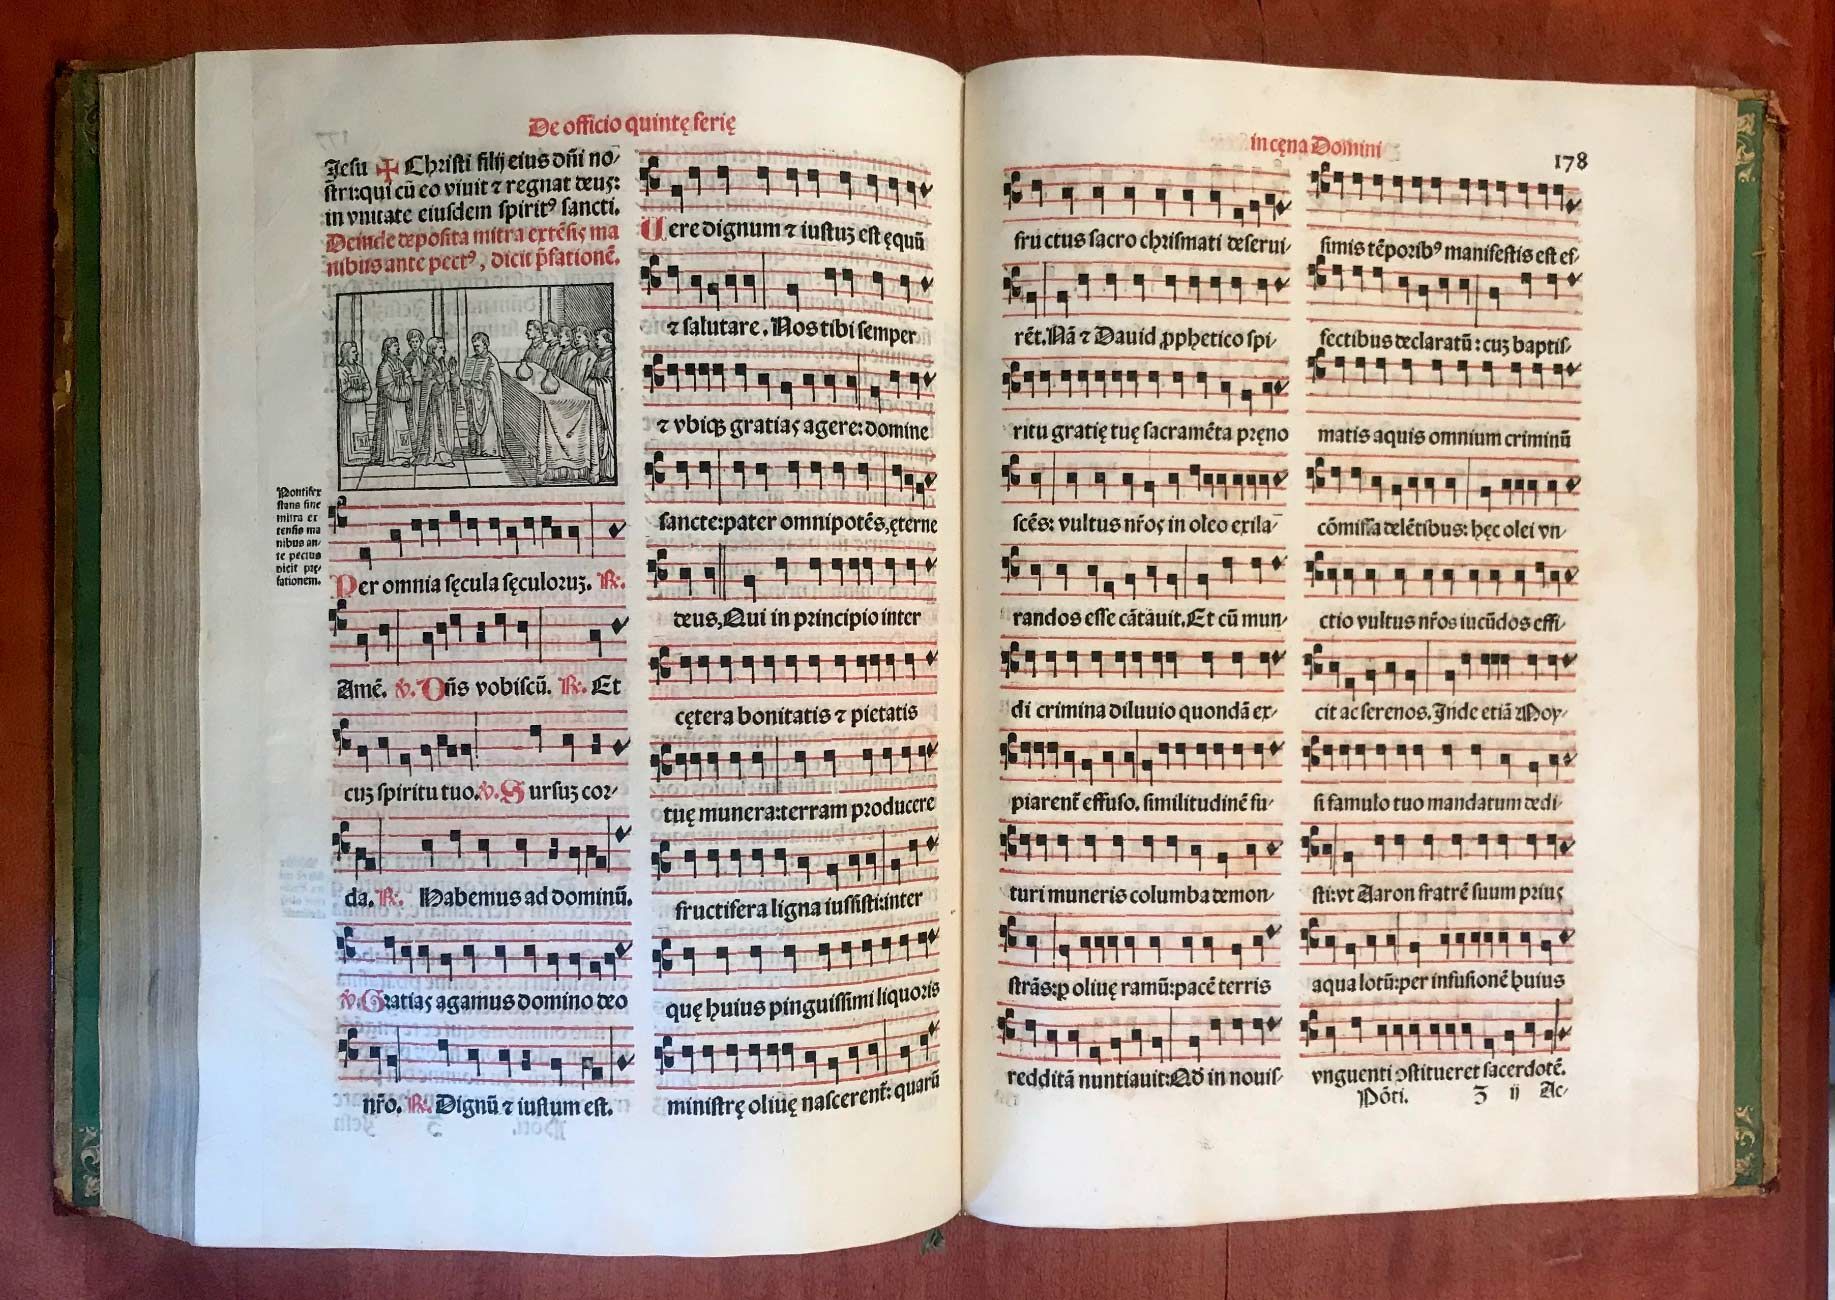 De officio quintę ferię
Jesu ✠ Christi filij eius dñi no/
stri: qui cū eo viuit ⁊ regnat deus:
in vnitate eiusdem spiritꝰ sancti.
Deinde deposita mitra extēsis ma
nibus ante pectꝰ, dicit p̄fationē.
Pontifex
stans sine
mitra ex
tensis ma
nibus an/
te pectus
dicit pre/
fationem.
Per omnia sęcula sęculoruꝫ. ℟.
Amē. ℣. Dñs vobiscū. ℟. Et
cuꝫ spiritu tuo. ℣. Sursuꝫ cor/
da. ℟. Habemus ad dominū.
℣. Gratias agamus domino deo
nr̄o. ℟. Dignū ⁊ iustum est.
Uere dignum ⁊ iustuꝫ est ęquū
⁊ salutare. Nos tibi semper
⁊ vbiqꝫ gratias agere: domine
sancte: pater omnipotēs, ęterne
deus, Qui in principio inter
cętera bonitatis ⁊ pietatis
tuę munera: terram producere
fructifera ligna iussisti: inter
quę huius pinguissimi liquoris
ministrę oliuę nascerent̄: quarū
in cęna Domini
178
fructus sacro chrismati deserui/
rēt. Nā ⁊ Dauid ꝓphetico spi/
ritu gratię tuę sacramēta pręno
scēs: vultus nr̄os in oleo exila/
randos esse cātauit. Et cū mun/
di crimina diluuio quondā ex/
piarent̄ effuso. similitudinē fu/
turi muneris columba demon/
strās: ꝑ oliuę ramū: pacē terris
redditā nuntiauit: Qd̄ in nouis/
simis tēporibꝰ manifestis est ef/
fectibus declaratū: cuꝫ baptis/
matis aquis omnium criminū
cōmissa delētibus: hęc olei vn/
ctio vultus nr̄os iucūdos effi/
cit ac serenos. Inde etiā Moy/
si famulo tuo mandatum dedi/
sti: vt Aaron fratrē suum prius
aqua lotū: per infusionē huius
vnguenti ↄstitueret sacerdotē.
Pōti. Z ij Ac/